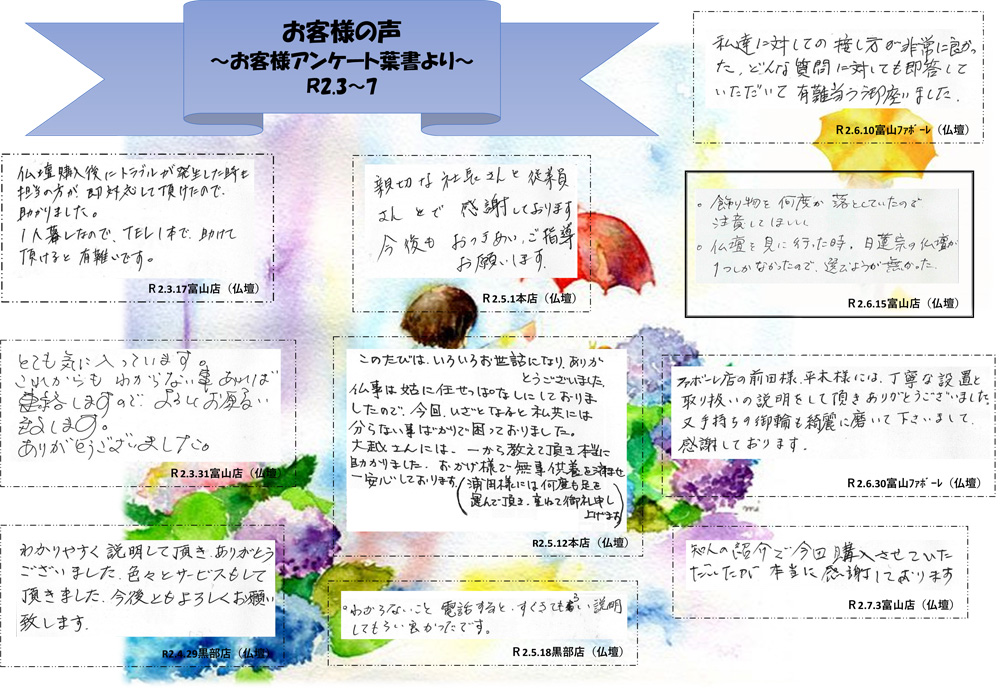 お客様の声
～お客様アンケート葉書より～
R2.3～7
私達に対しての接し方が非常に良かっ
た。どんな質問に対しても即答して
いただいて有難当う御座いました。
R2.6.10富山ﾌｧﾎﾞｰﾚ（仏壇）
仏壇購入後にトラブルが発生した時も
担当の方が即対応して頂けたので、
助かりました。
1人暮しなので、TEL1本で、助けて
頂けると有難いです。
R2.3.17富山店（仏壇）
親切な社長さんと従業員
さんとで感謝しております
今後もおつきあい、ご指導
お願いします。
R2.5.1本店（仏壇）
。飾り物を何度か落としていたので
注意してほしい
。仏壇を見に行った時、日蓮宗の仏壇が
1つしかなかったので、選びようが無かった。
R2.6.15富山店（仏壇）
とても気に入っています。
これからもわからない事あれば
連絡しますので、よろしくお願い
致します。
ありがとうございました。
R2.3.31富山店（仏壇）
このたびは、いろいろお世話になり、ありが
とうございました。
仏事は姑に任せっぱなしにしておりま
したので、今回、いざとなると私共には
分らない事ばかりで困っておりました。
大越さんには、一から教えて頂き本当に
助かりました。おかげ様で無事供養を済ませ
一安心しております。
（浦田様には何度も足を
運んで頂き、重ねて御礼申し
上げます）
R2.5.12本店（仏壇）
ファボーレ店の前田様、平木様には、丁寧な設置と
取り扱いの説明をして頂きありがとうございました。
又手持ちの御輪も綺麗に磨いて下さいまして、
感謝しております。
R2.6.30富山ﾌｧﾎﾞｰﾚ（仏壇）
わかりやすく説明して頂き、ありがとう
ございました。色々とサービスもして
頂きました。今後ともよろしくお願い
致します。
R2.4.29黒部店（仏壇）
。わからないこと電話すると、すぐうでも 説明
してもらい良かったです。
R2.5.18黒部店（仏壇）
知人の紹介で今回購入させていた
だいたが本当に感謝しております
R2.7.3富山店（仏壇）